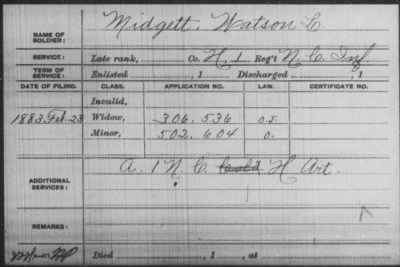 NAME OF SOLDIER: Midgett, Watson L
SERVICE: Late rank, Co. H, 1 Reg't N. C. Inf
TERM OF SERVICE: Enlisted , 1 Discharged , 1
DATE OF FILING. CLASS. APPLICATION NO. LAW. CERTIFICATE NO.
Invalid,
1883 Feb. 23 Widow, 306.536 O.J.
Minor, 502.604 O.
ADDITIONAL SERVICES: A. 1 N. C. H Art.
REMARKS:
Died , 1 , at